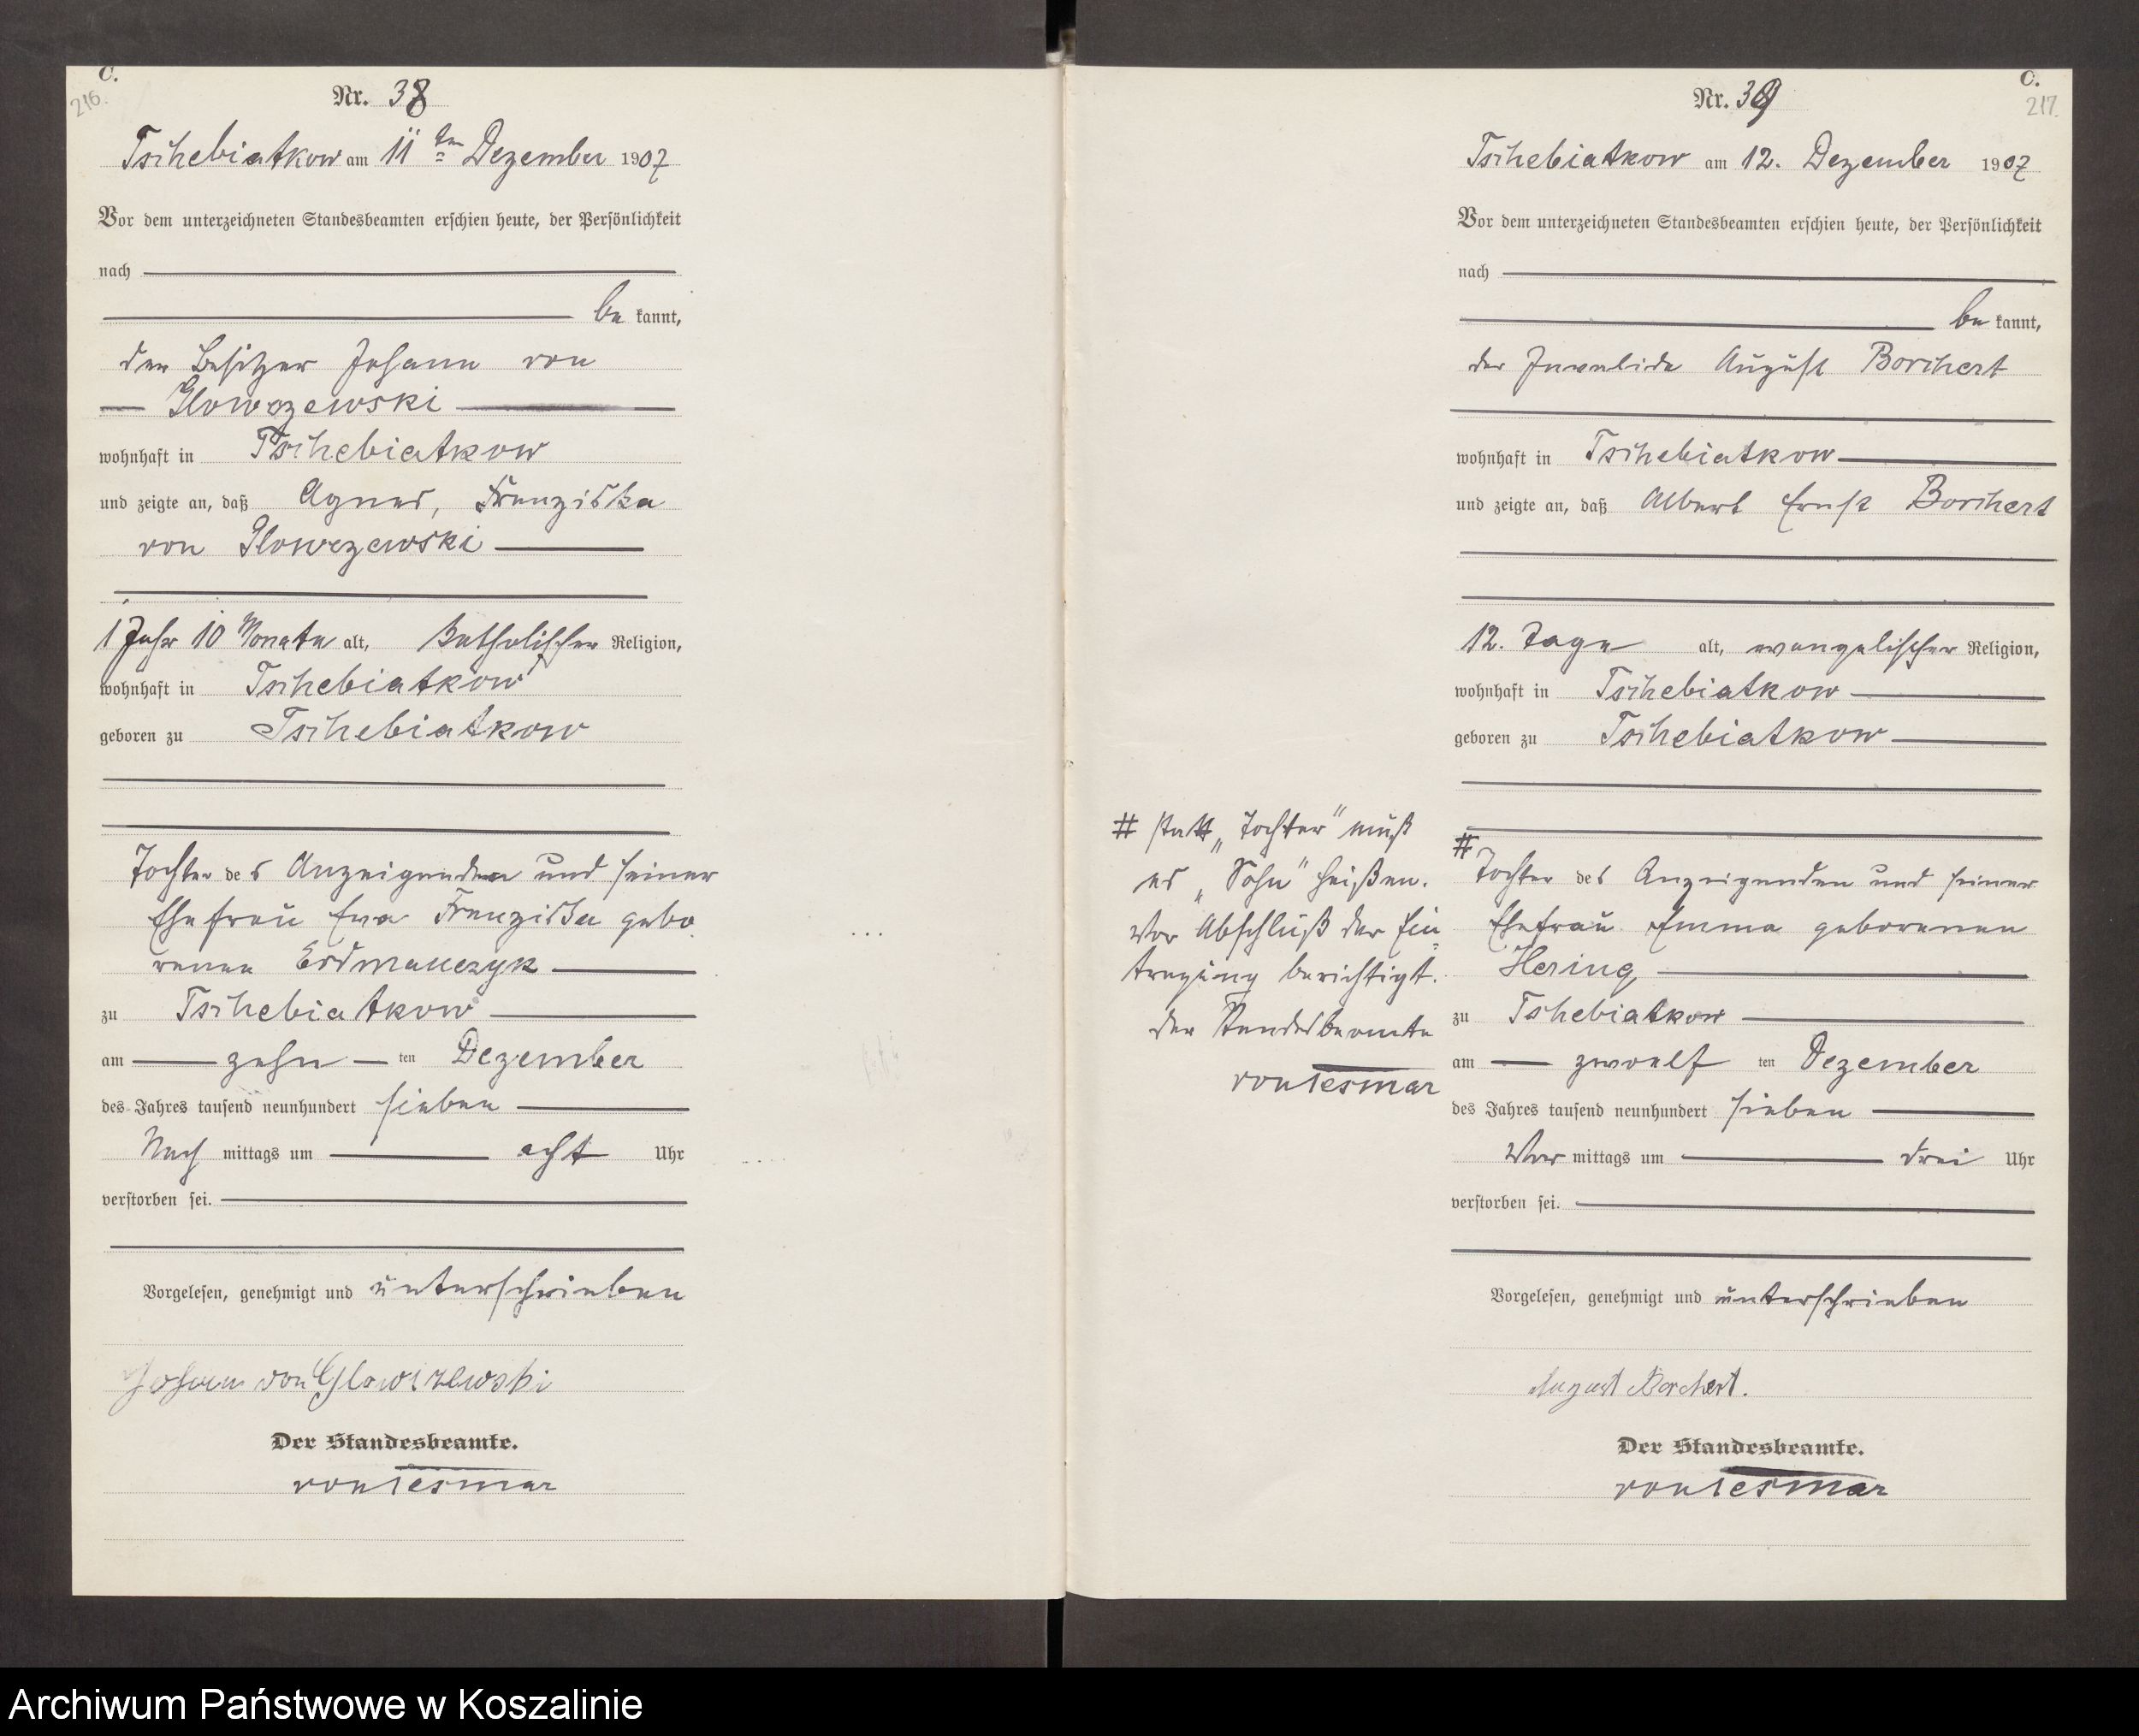 C.
216.
Nr. 38
Tschebiatkow am 11ten Dezember 1907
Vor dem unterzeichneten Standesbeamten erschien heute, der Persönlichkeit
nach
be kannt,
der Besitzer Johann von
Glowczewski
wohnhaft in Tschebiatkow
und zeigte an, daß Agnes, Franziska
von Glowczewski
1 Jahr 10 Monate alt, katholischer Religion,
wohnhaft in Tschebiatkow
geboren zu Tschebiatkow
Tochter des Anzeigenden und seiner
Ehefrau Eva Franziska gebo
renen Erdmanczyk
zu Tschebiatkow
am zehn ten Dezember
des Jahres tausend neunhundert sieben
Nach mittags um acht Uhr
verstorben sei.
Vorgelesen, genehmigt und unterschrieben
Johann von Glowczewski
Der Standesbeamte.
von Tesmar
C.
217.
Nr. 39
Tschebiatkow am 12. Dezember 1907
Vor dem unterzeichneten Standesbeamten erschien heute, der Persönlichkeit
nach
be kannt,
der Invalide August Borchert
wohnhaft in Tschebiatkow
und zeigte an, daß Albert Ernst Borchert
12. Tage alt, evangelischer Religion,
wohnhaft in Tschebiatkow
geboren zu Tschebiatkow
# Tochter des Anzeigenden und seiner
Ehefrau Emma geborenen
Hering
zu Tschebiatkow
am zwoelf ten Dezember
des Jahres tausend neunhundert sieben
Vor mittags um drei Uhr
verstorben sei.
Vorgelesen, genehmigt und unterschrieben
August Borchert.
Der Standesbeamte.
von Tesmar
# statt „Tochter" muß
es „Sohn" heißen.
Vor Abschluß der Ein=
tragung berichtigt.
Der Standesbeamte
von Tesmar
Archiwum Państwowe w Koszalinie